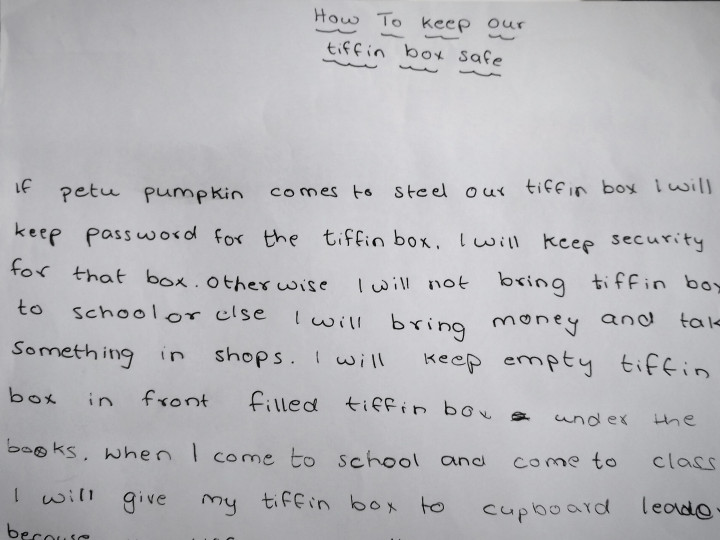 How To keep our
tiffin box safe
If petu pumpkin comes to steel our tiffin box I will
keep password for the tiffin box. I will keep security
for that box. Otherwise I will not bring tiffin box
to school or else I will bring money and tak
Something in shops. I will keep empty tiffin
box in front filled tiffin box under the
books. When I come to school and come to class
I will give my tiffin box to cupboard leade
because